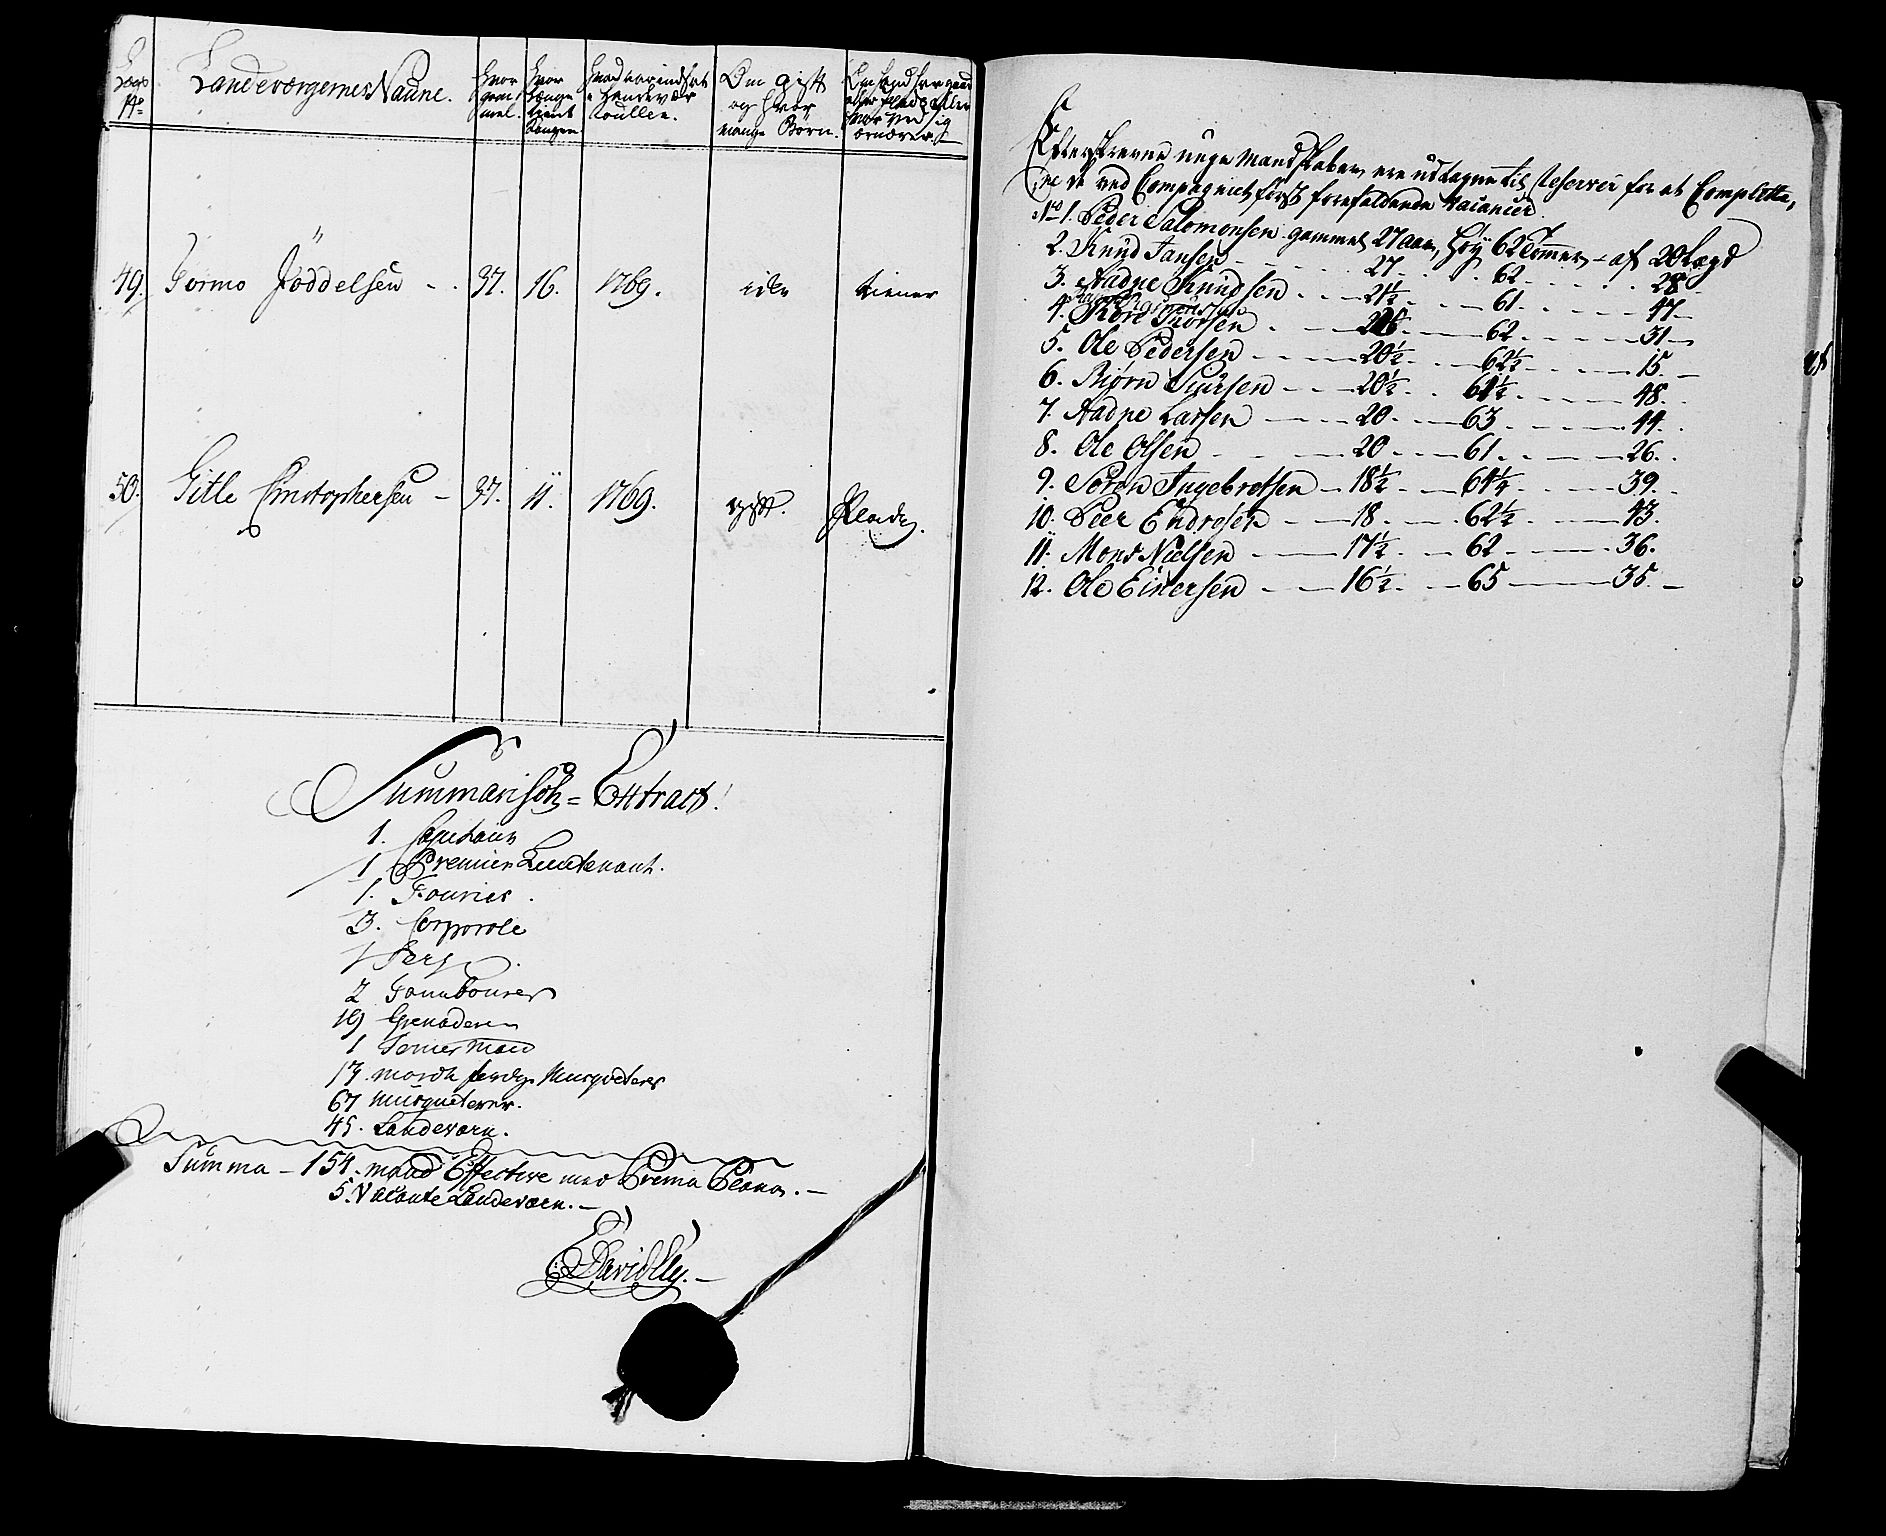 Lægs No
Landeværgernes Naune.
Hvor gam̄mel.
Hvor længe tient Kongen
Hvad aar indsat i Landevær Roullen.
Om gift og hvor mange Børn.
49. Tormo Joddelsen - - 37. 16. 1769. ikke tiener
50. Gitle Christophersen - 37. 11. 1769. gift. Plads.
Summarisch = Extract!
1. Capitain
1 Premier Lieutenant.
1. Fourier.
3. Corporale
1 Fersz.
2 Tambourer
19 Grenaderer
1 Temermand
17. march ferdge Musqveterer
67 Musqueterer.
45. Landeværn.
Summa - 154. mand Effective med Prema Plana. -
5. Vacante Landeværn. -
Efterskrevne unge Mandskaber ere udtagne til Reserver for at Complette,
re de ved Compagniet først forefaldende Vacancier.
No 1. Peder Salomonsen gammel 27 aar, Høy 62 Tommer - af 20 Lægd
2. Knud Jansen - - 27 - - 62 - - 28
3. Aadne Knudsen - - 21½ - - 61 - - 47
4. Tore Thorsen - - 62 - - 31 -
5. Ole Pedersen - - 20½ - - 62½ - - 15. -
6. Biørn Siursen - - 20½ - - 61½ - - 48.
7. Aadne Larsen - - 20 - - 63 - - 44.
8. Ole Olsen - - 20 - - 61 - - 26.
9. Søren Ingebretsen - 18½ - - 61¼ - - 39.
10. Peer Endresen - - 18 - - 62½ - - 43.
11. Mons Nielsen - - 17½ - - 62 - - 36.
12. Ole Einersen - - 16½ - - 65 - - 35. -